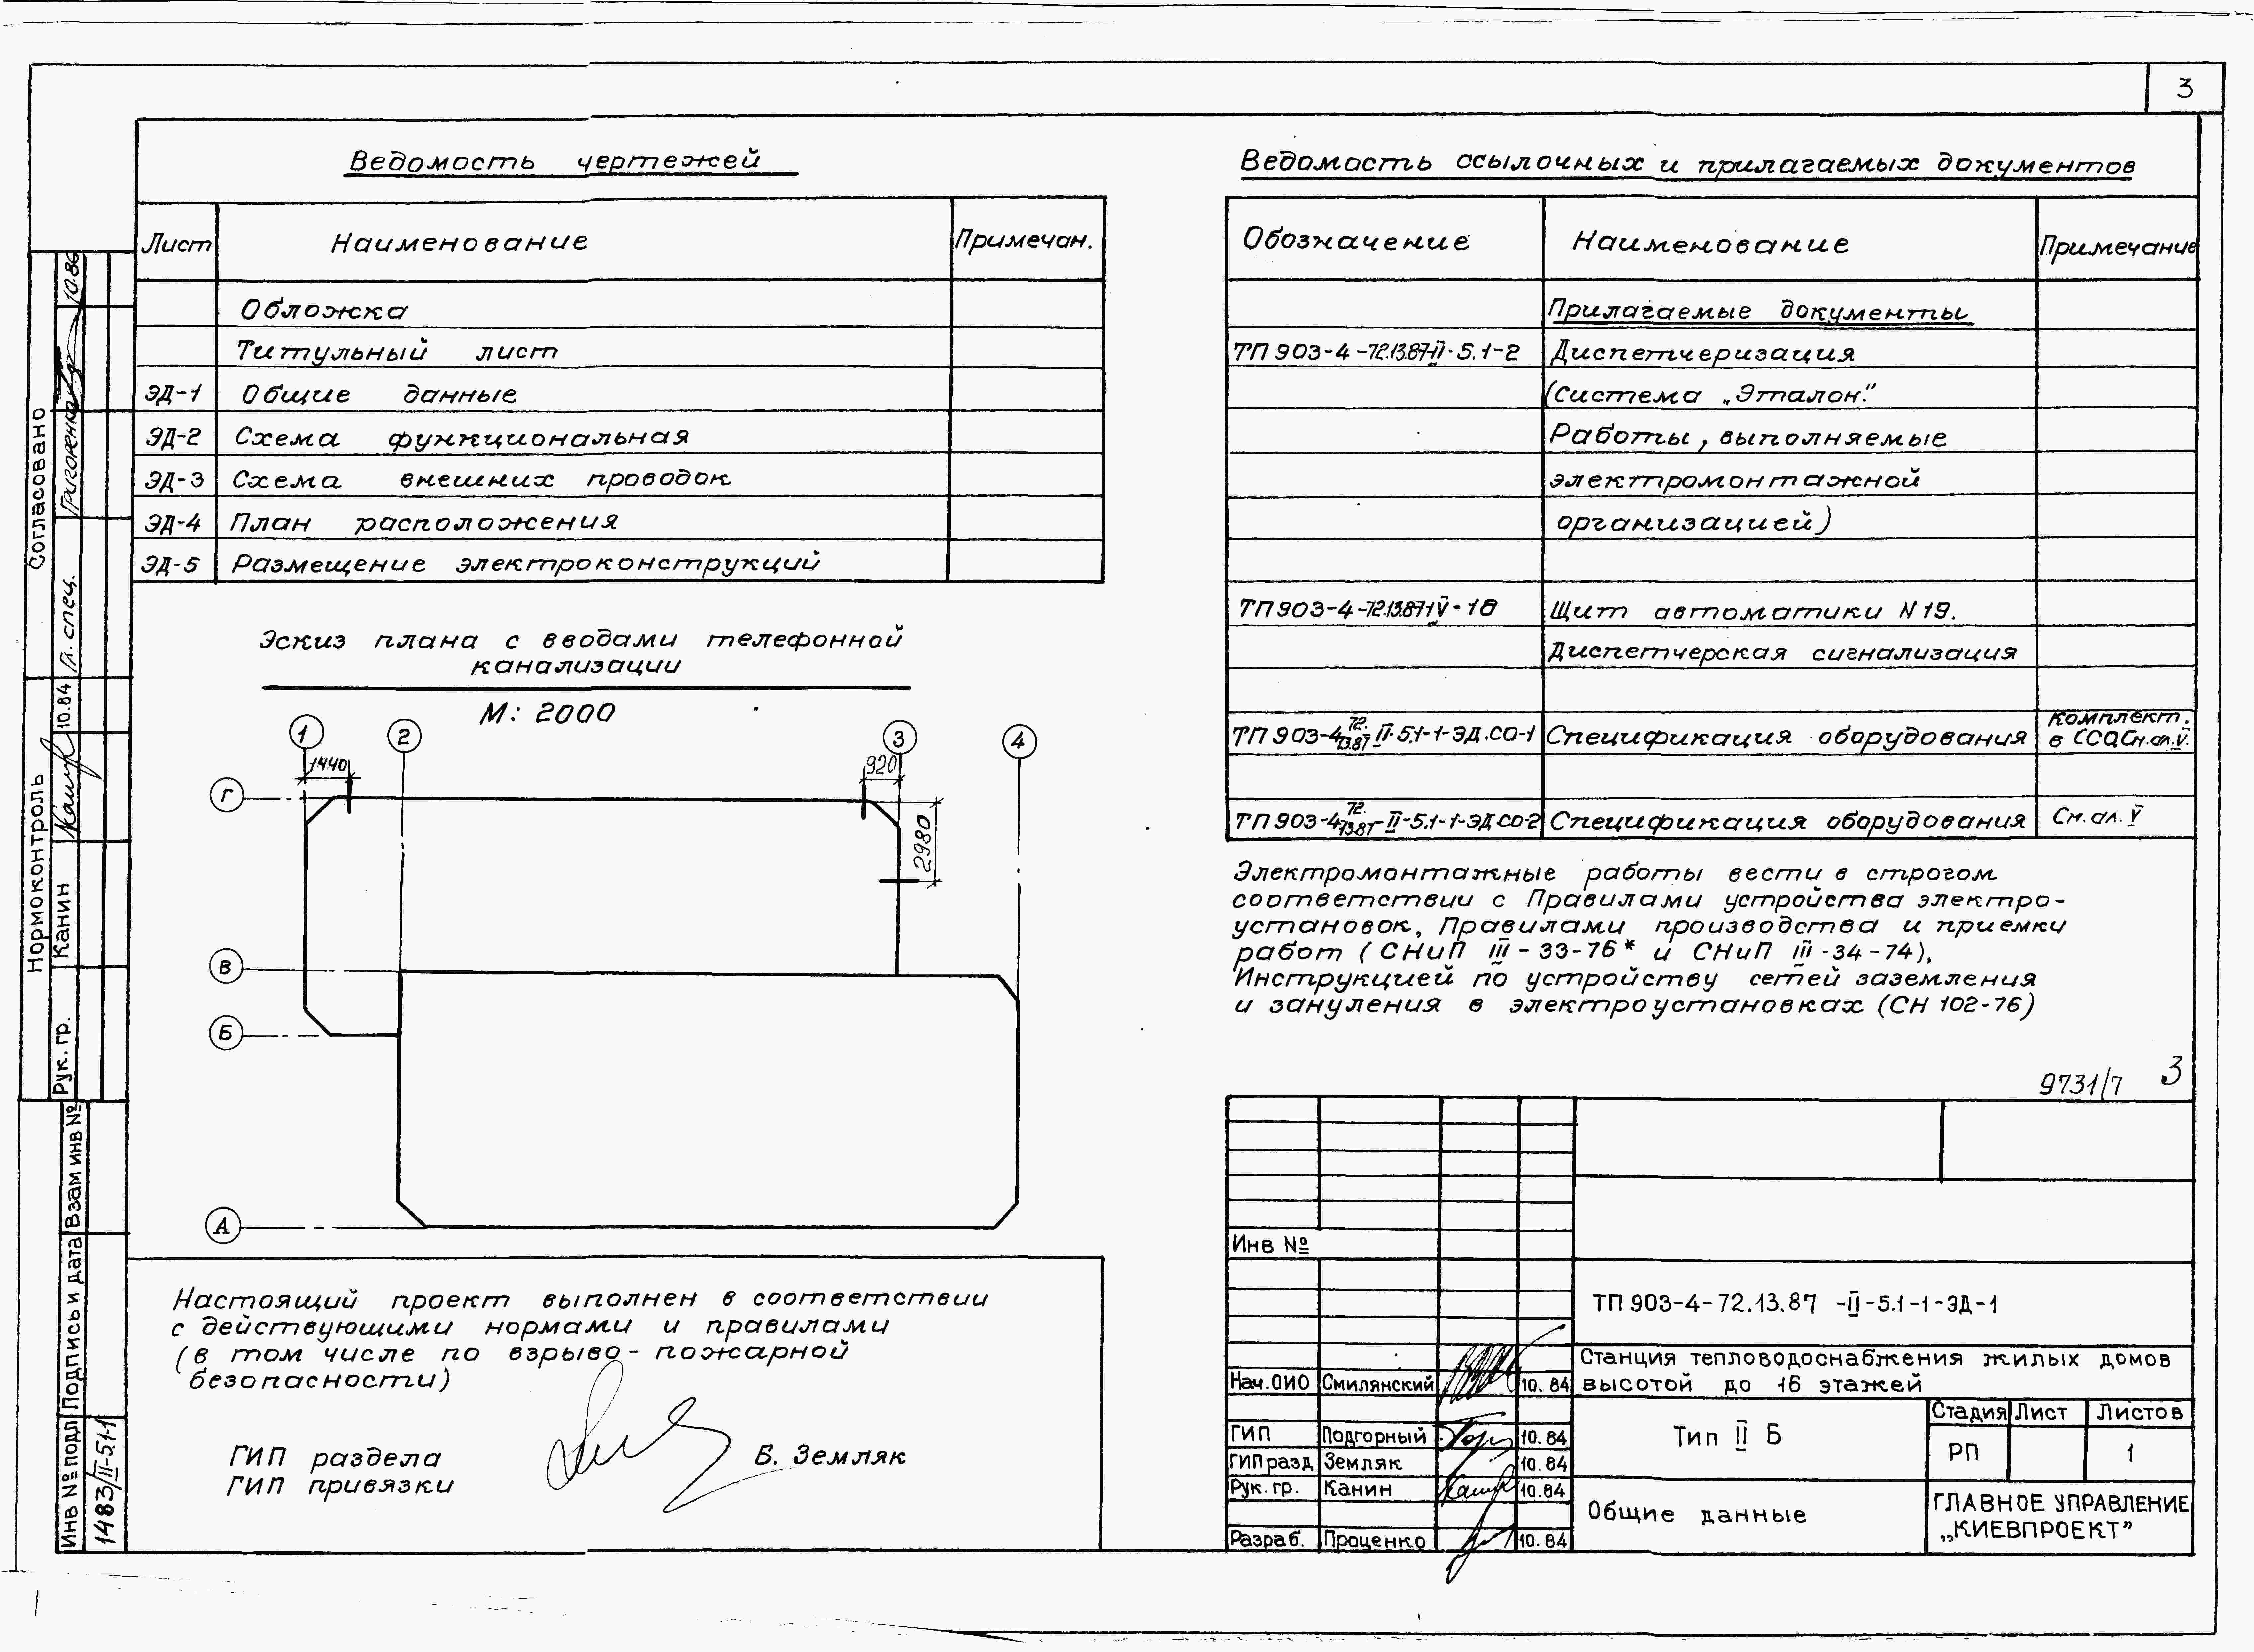 3
Ведомость чертежей
Лист Наименование Примечан.
Обложка
Титульный лист
ЭД-1 Общие данные
ЭД-2 Схема функциональная
ЭД-3 Схема внешних проводок
ЭД-4 План расположения
ЭД-5 Размещение электроконструкций
Ведомость ссылочных и прилагаемых документов
Обозначение Наименование Примечание
Прилагаемые документы
ТП 903-4-72.13.87-II-5.1-2 Диспетчеризация
(Система „Эталон."
Работы, выполняемые
электромонтажной
организацией)
ТП 903-4-72.13.87-IV-18 Щит автоматики N19.
Диспетчерская сигнализация
ТП 903-4-72.13.87 II-5.1-1-ЭД.СО-1 Спецификация оборудования комплект.
ТП 903-4-72.13.87-II-5.1-1-ЭД.СО-2 Спецификация оборудования См. ал. V
Эскиз плана с вводами телефонной
канализации
М: 2000
1 2 3 4
1440 920
Г
2980
В
Б
А
Электромонтажные работы вести в строгом
соответствии с Правилами устройства электро-
установок, Правилами производства и приемки
работ (СНиП III-33-76* и СНиП III-34-74),
Инструкцией по устройству сетей заземления
и зануления в электроустановках (СН 102-76)
9731/7 3
Настоящий проект выполнен в соответствии
с действующими нормами и правилами
(в том числе по взрыво-пожарной
безопасности)
ГИП раздела Б. Земляк
ГИП привязки
Инв №
ТП 903-4-72.13.87 -II-5.1-1-ЭД-1
Станция тепловодоснабжения жилых домов
высотой до 16 этажей
Нач. ОИО Смилянский 10.84
ГИП Подгорный 10.84
ГИП разд Земляк 10.84
Рук. гр. Канин 10.84
Разраб. Проценко 10.84
Тип II Б
Стадия Лист Листов
РП 1
Общие данные
ГЛАВНОЕ УПРАВЛЕНИЕ
„КИЕВПРОЕКТ"
Согласовано
Гл. спец. Григоренко 10.86
Нормоконтроль
Рук. гр. Канин 10.84
Инв № подл Подпись и дата Взам инв №
1483/II-5.1-1